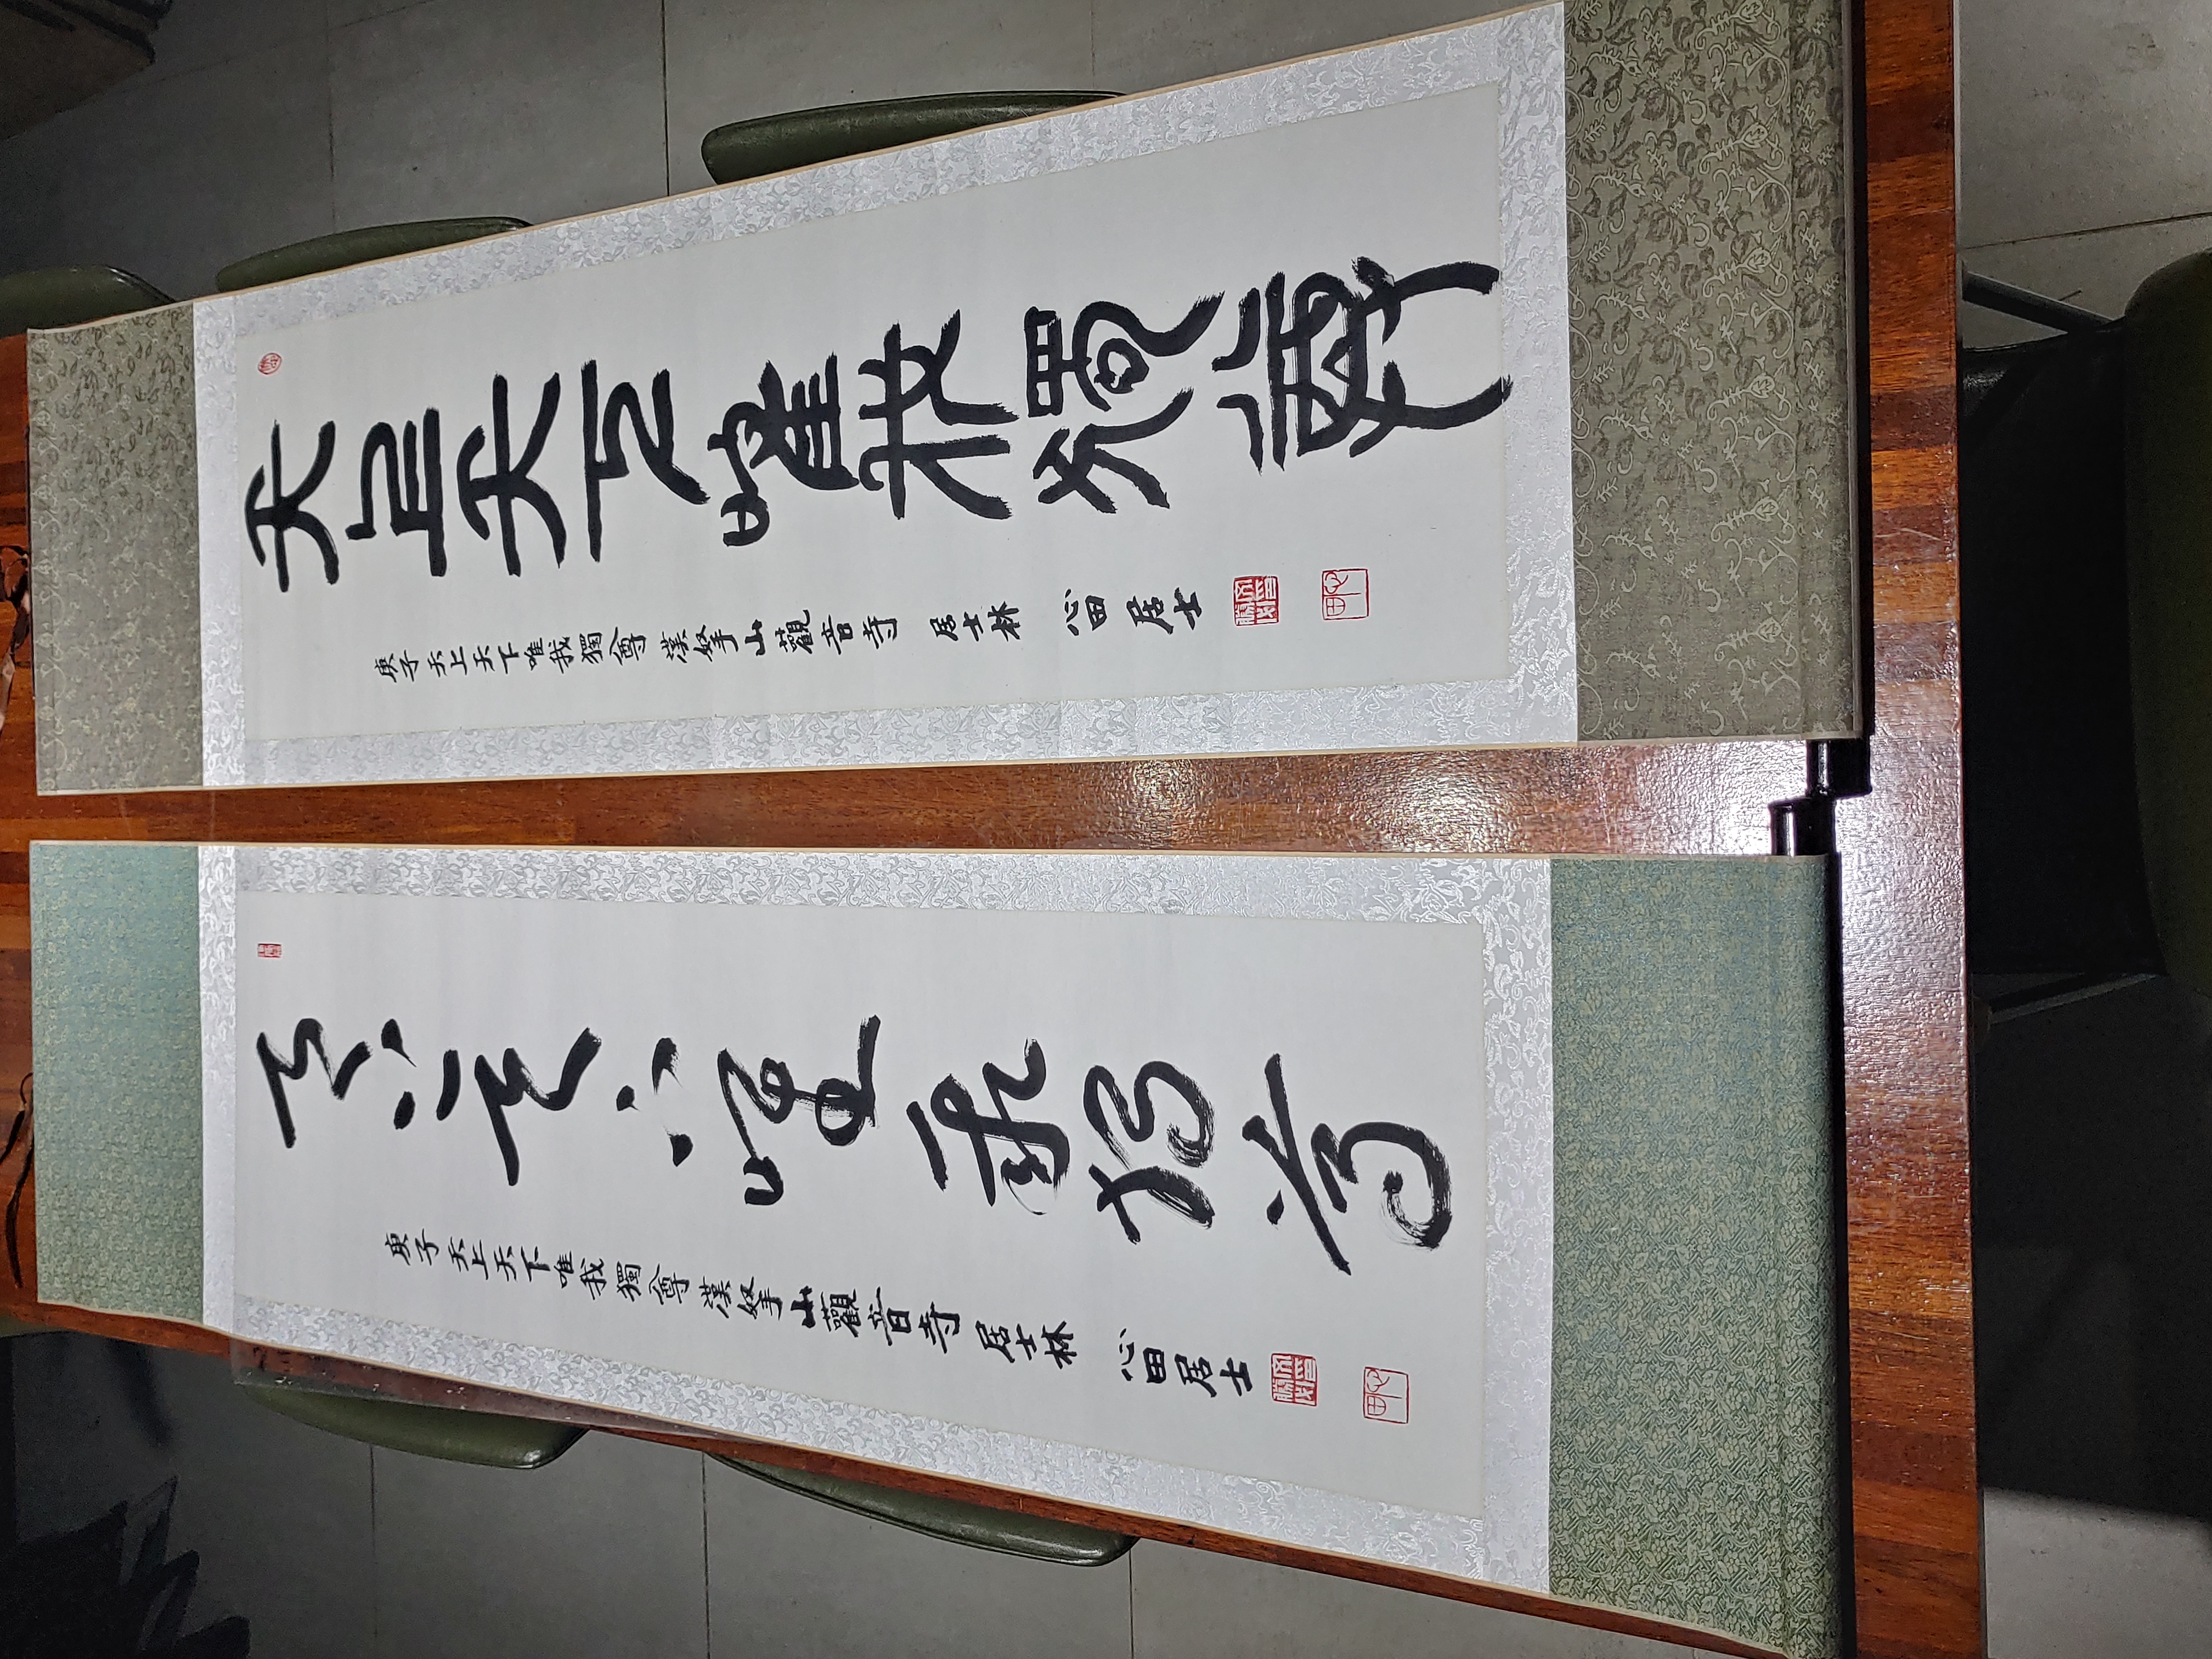 天上天下唯我獨尊
庚子 天上天下唯我獨尊 漢拏山觀音寺 居士林 心田居士
心田
天上天下唯我獨尊
庚子 天上天下唯我獨尊 漢拏山觀音寺 居士林 心田居士
心田